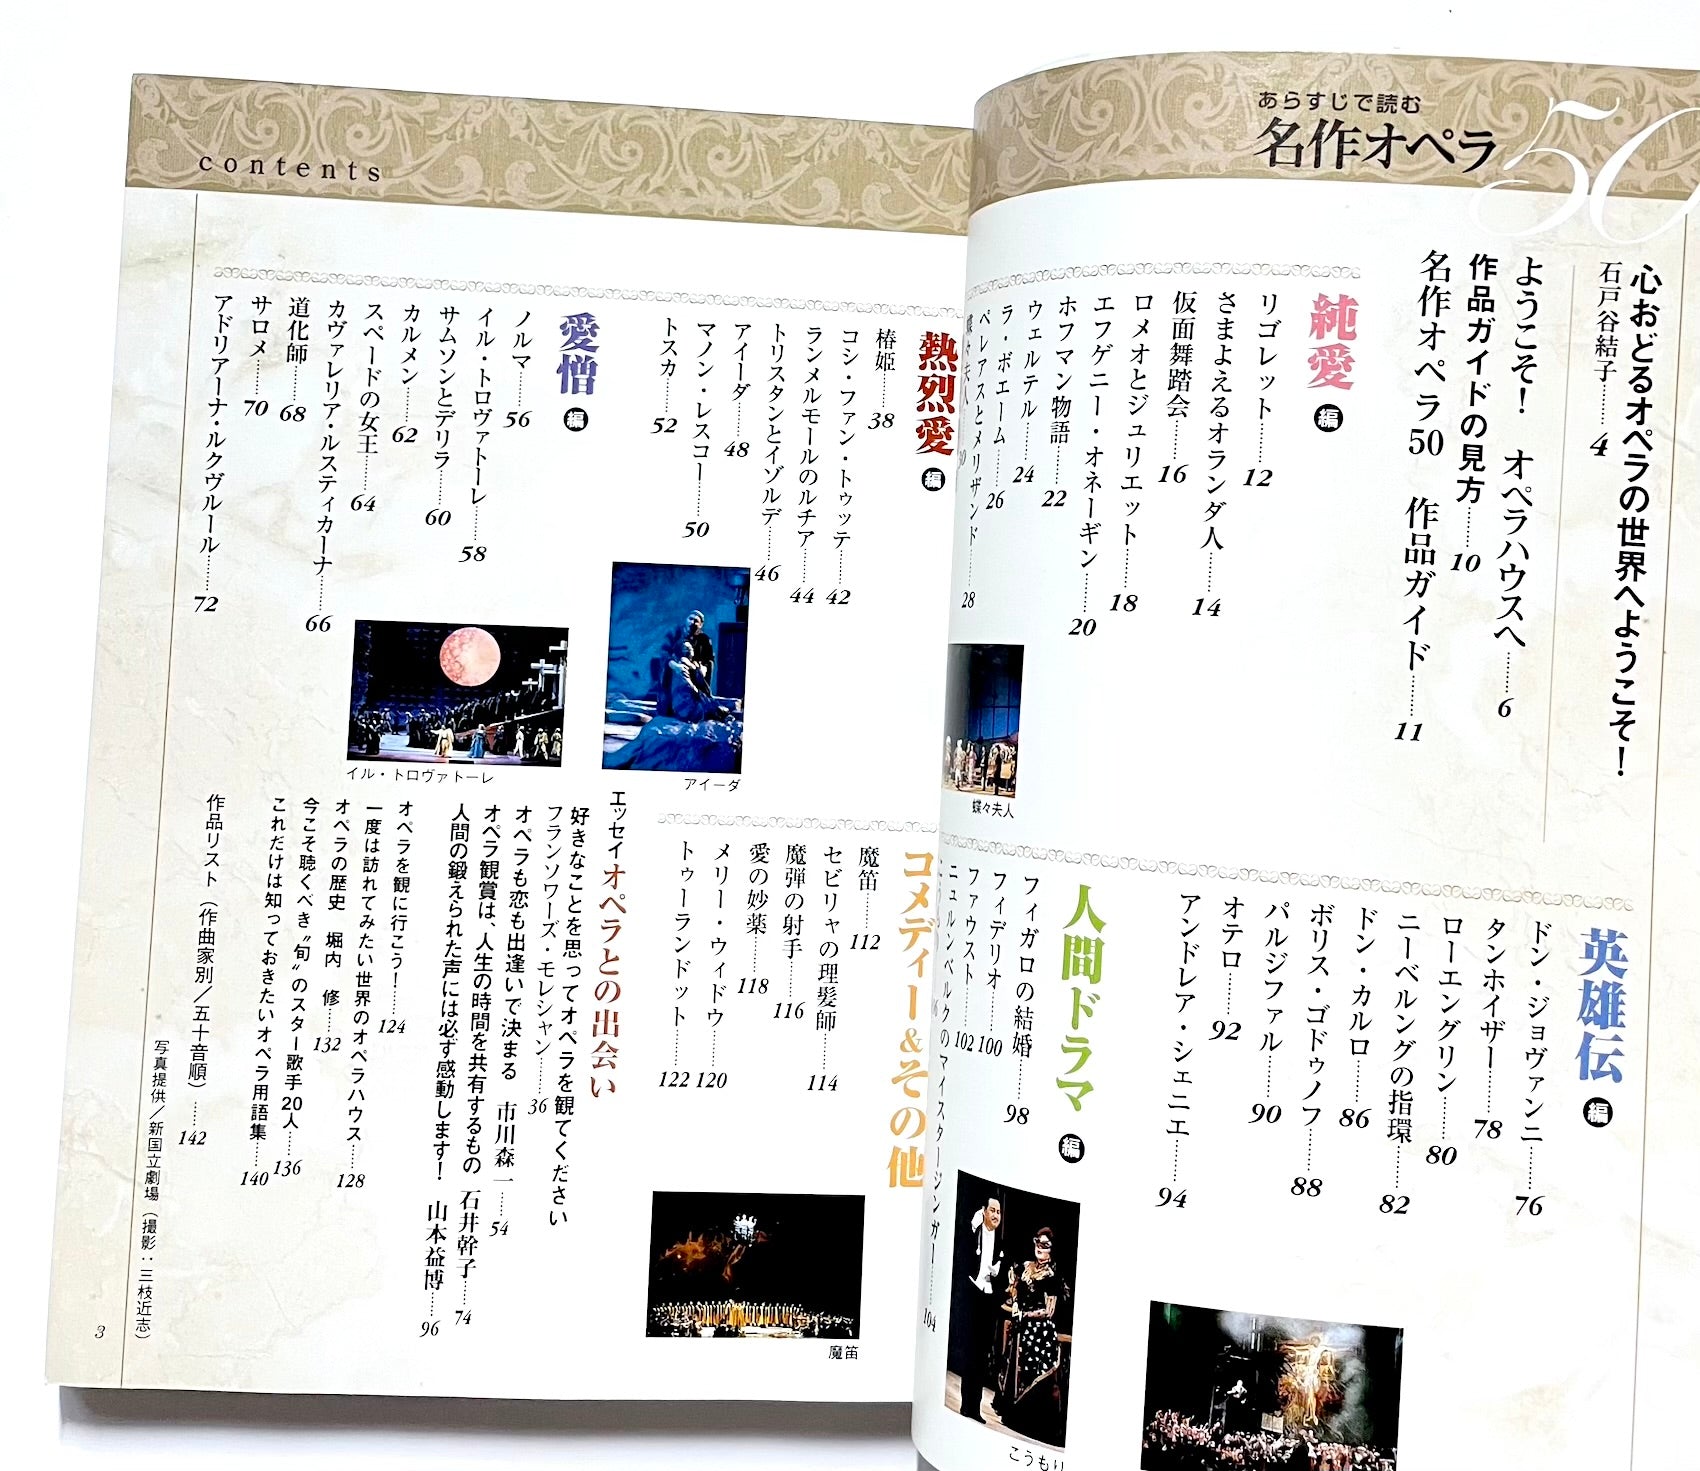 あらすじで読む
名作オペラ50
心おどるオペラの世界へようこそ！
石戸谷結子……4
ようこそ！　オペラハウスへ……6
作品ガイドの見方……10
名作オペラ50　作品ガイド……11
純愛編
リゴレット……12
さまよえるオランダ人……14
仮面舞踏会……16
ロメオとジュリエット……18
エフゲニー・オネーギン……20
ホフマン物語……22
ウェルテル……24
ラ・ボエーム……26
ペレアスとメリザンド……28
蝶々夫人
英雄伝編
ドン・ジョヴァンニ……76
タンホイザー……78
ローエングリン……80
ニーベルングの指環……82
ドン・カルロ……86
ボリス・ゴドゥノフ……88
パルジファル……90
オテロ……92
アンドレア・シェニエ……94
人間ドラマ編
フィガロの結婚……98
フィデリオ……100
ファウスト……102
ニュルンベルクのマイスタージンガー……104
こうもり
contents
熱烈愛編
椿姫……38
コシ・ファン・トゥッテ……42
ランメルモールのルチア……44
トリスタンとイゾルデ……46
アイーダ……48
マノン・レスコー……50
トスカ……52
アイーダ
愛憎編
ノルマ……56
イル・トロヴァトーレ……58
サムソンとデリラ……60
カルメン……62
スペードの女王……64
カヴァレリア・ルスティカーナ……66
道化師……68
サロメ……70
アドリアーナ・ルクヴルール……72
イル・トロヴァトーレ
コメディー&その他
魔笛……112
セビリャの理髪師……114
魔弾の射手……116
愛の妙薬……118
メリー・ウィドウ……120
トゥーランドット……122
魔笛
エッセイ オペラとの出会い
好きなことを思ってオペラを観てください
フランソワーズ・モレシャン……36
オペラも恋も出逢いで決まる　市川森一……54
オペラ観賞は、人生の時間を共有するもの　石井幹子……74
人間の鍛えられた声には必ず感動します！　山本益博……96
オペラを観に行こう！……124
一度は訪れてみたい世界のオペラハウス……128
オペラの歴史　堀内　修……132
今こそ聴くべき“旬”のスター歌手20人……136
これだけは知っておきたいオペラ用語集……140
作品リスト（作曲家別／五十音順）……142
写真提供／新国立劇場（撮影：三枝近志）
3